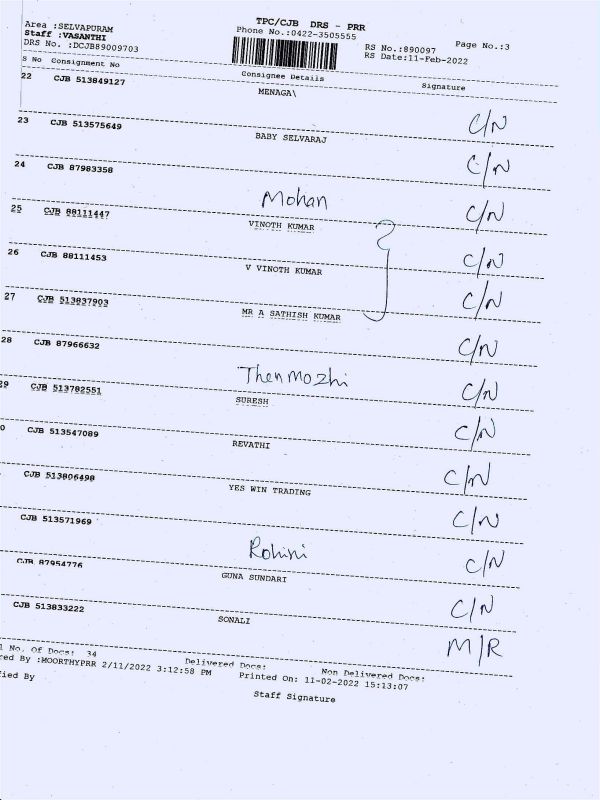 TPC/CJB DRS - PRR
Area :SELVAPURAM Phone No.:0422-3505555
Staff :VASANTHI RS No.:890097 Page No.:3
DRS No. :DCJB89009703 RS Date:11-Feb-2022
S No Consignment No Consignee Details Signature
22 CJB 513849127 MENAGA\ C/N
23 CJB 513575649 BABY SELVARAJ C/N
24 CJB 87983358 Mohan C/N
25 CJB 88111447 VINOTH KUMAR C/N
26 CJB 88111453 V VINOTH KUMAR C/N
27 CJB 513837903 MR A SATHISH KUMAR C/N
28 CJB 87966632 Thenmozhi C/N
29 CJB 513782551 SURESH C/N
0 CJB 513547089 REVATHI C/N
CJB 513806498 YES WIN TRADING C/N
CJB 513571969 Rohini C/N
CJB 87954776 GUNA SUNDARI C/N
CJB 513833222 SONALI M/R
l No. Of Docs: 34 Delivered Docs: Non Delivered Docs:
red By :MOORTHYPRR 2/11/2022 3:12:58 PM Printed On: 11-02-2022 15:13:07
fied By Staff Signature